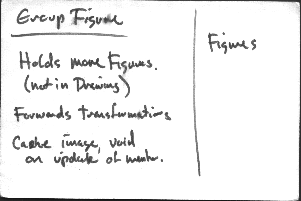 Group Figure
Holds more Figures.
(not in Drawing)
Forwards transformations
Cache image, void
on update of member.
Figures